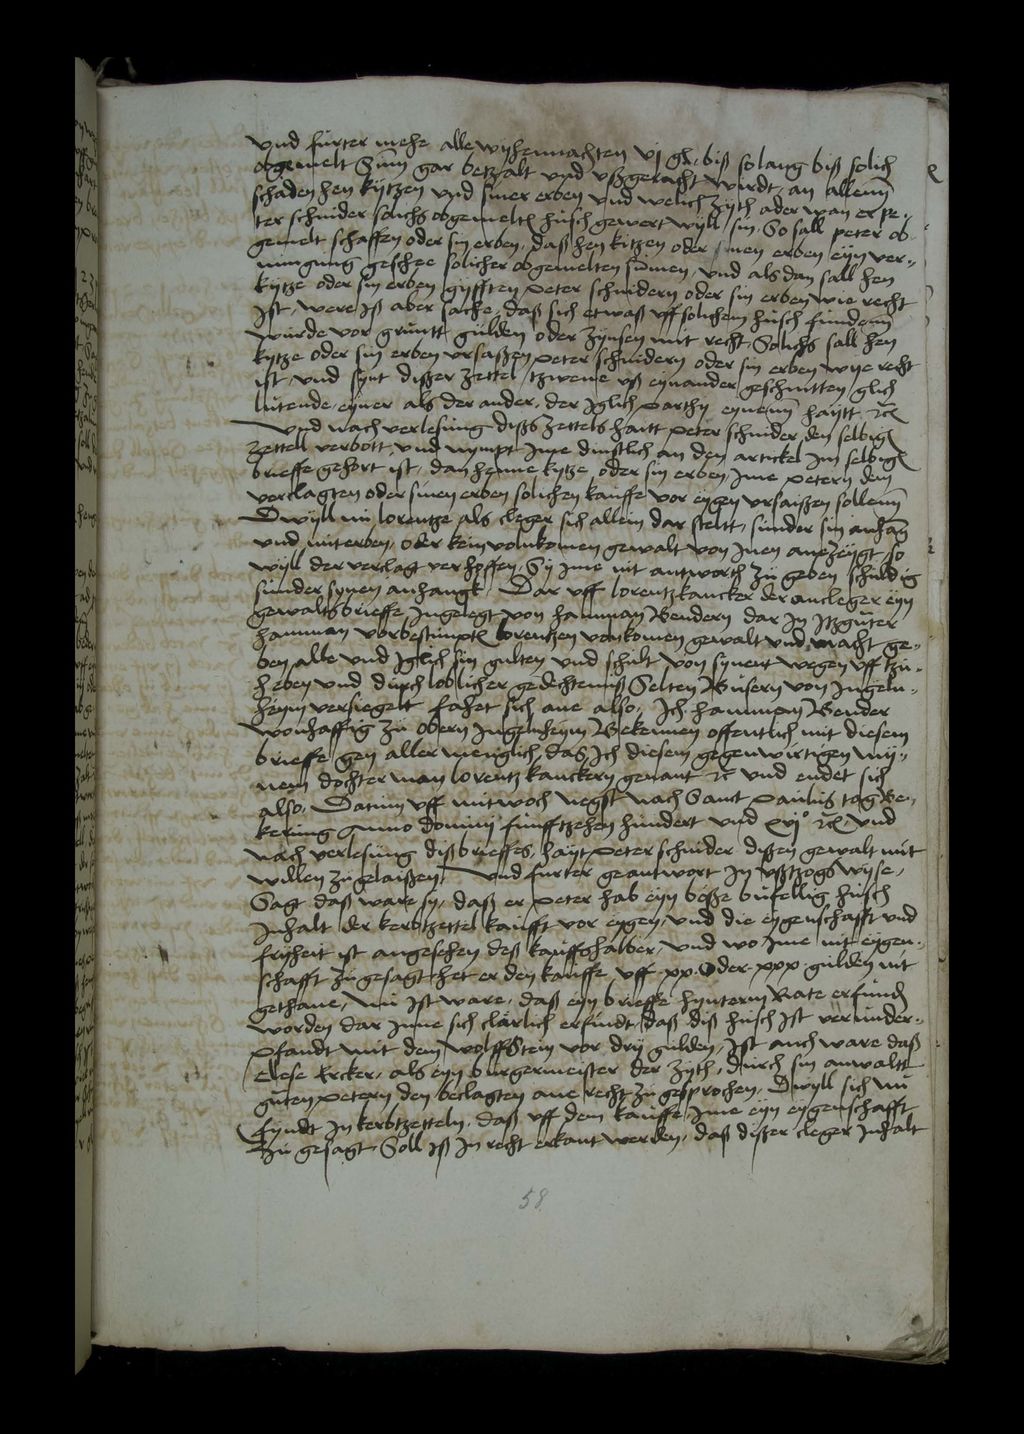 und furter mehe alle wyhennachten vj gl. biß so lang biß solich
obgemelt Sum gar betzalt und ußgeracht wirdt, an allenn
schaden hen kytzen und siner erben und welich zyth ader wan er pe-
ter schnider solichs obgemelts husch gewert wyll sin, So sall peter ob-
gemelt schaffen oder sin erben, daß hen kitzen oder sinen erben eyn ver-
nungung geschee solicher obgemelten sumen, und als dan sall hen
kytze oder sin erben gyfften peter schnidern oder sin erben wie recht
Ist, were Iß aber sache, daß sich etwaß uff solichem husch fundenn
wurde vor gruntt gulden oder zynsen mit recht, Solichs sall hen
kytze oder sin erben ursaßen peter schnidern oder sin erben wye recht
ist, und synt dißer zettel tzwene uß eynander geschnitten, glich
lutende, eyner als der ander, der Iglich parthy eynenn haytt etc
Und nach verlesung dyßs zettels haitt peter schnider den selbigen
zettell verbott, und nympt Ime dinstlich an den artickel Im selbigen
brieffe gehort ist, dan henne kytze oder sin erben Ime petern dem
verclagten oder sinen erben solichen kauffe vor eygen ursaißen sollenn
Dwyll nu lorentze als cleger sich allein dar steltt, sunder sin anhang
und miterben, oder kein volnkomen gewalt von Inen anezeygt, so
wyll der verclagt verhoffen, Sy Ime nit antworth zu geben schuldig
sunder synen anhangk. Dar uff lorentz kancker der ancleger eyn
gewaltsbrieffe Ingelegt von hamman Bendern dar In Itzguter
hamman vorbestimpten lorentzen vonkomen gewalt und macht ge-
ben alle und Iglich sin gulten und schult von synent wegen uff tzu-
heben und durch loblicher gedechteniß Selten Busern von Ingeln-
heym versiegelt fahet sich ane also, Ich hamman Bender
wonhafftig zu obern Ingelnheym Bekennen offentlich mit diesem
brieffe gen aller menglich, das Ich diesem gegenwirtigen my-
nem dochter man lorentz kanckern genant etc und endet sich
also, Datum uff mitwoch negst nach Sanct paulus tag Be-
kerung Anno domini funfftzehen hundert und xvjo etc Und
nach verlesung diß brieffes, hayt peter schnider dißen gewalt mit
willen zugelaißen, Und furter geantwort In ußtzogs wyse,
Sagt daß ware sy, daß er peter hab eyn boße bufellig husch
Inhalt der kerbtzettel kaufft vor eygen, und die eygenschafft und
fryheit ist angesehen deß kauffshalber, und wo Ime nit eygen-
schafft zugesagt het er den kauffe uff xx oder xxx gulden nit
gethane, nu Ist ware, daß eyn brieffe hynterm Rate erfunden
worden dar Inne sich clarlich erfindt, daß diß husch Ist verunder-
pfandt mit dem wolffstein vor dry gulden, Ist auch ware daß
Clese Ercker, als eyn burgermeister der zyth, durch sin anwaltt
guten petern den beclagten ane recht zu gesprochen, Dwyll sich nu
fyndt In kerbtzetteln, daß uff dem kauffe Ime eyn eygenschafft
zu gesagt, Soll Iß In recht erkant werden, daß dißer cleger Inhalt
58